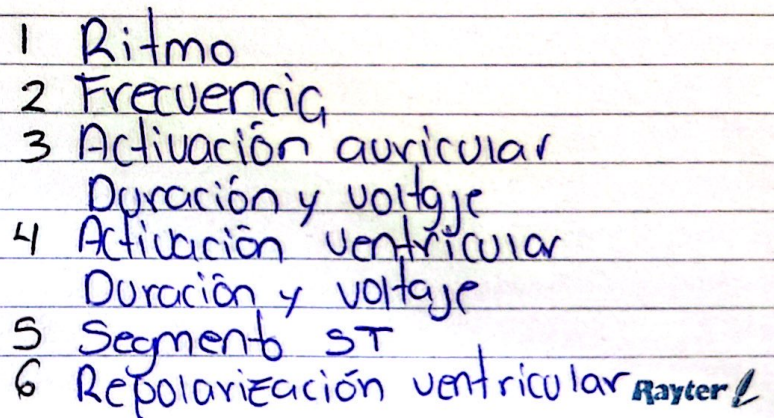 1 Ritmo
2 Frecuencia
3 Activación auricular
Duración y voltaje
4 Activación ventricular
Duración y voltaje
5 Segmento ST
6 Repolarización ventricular Rayter